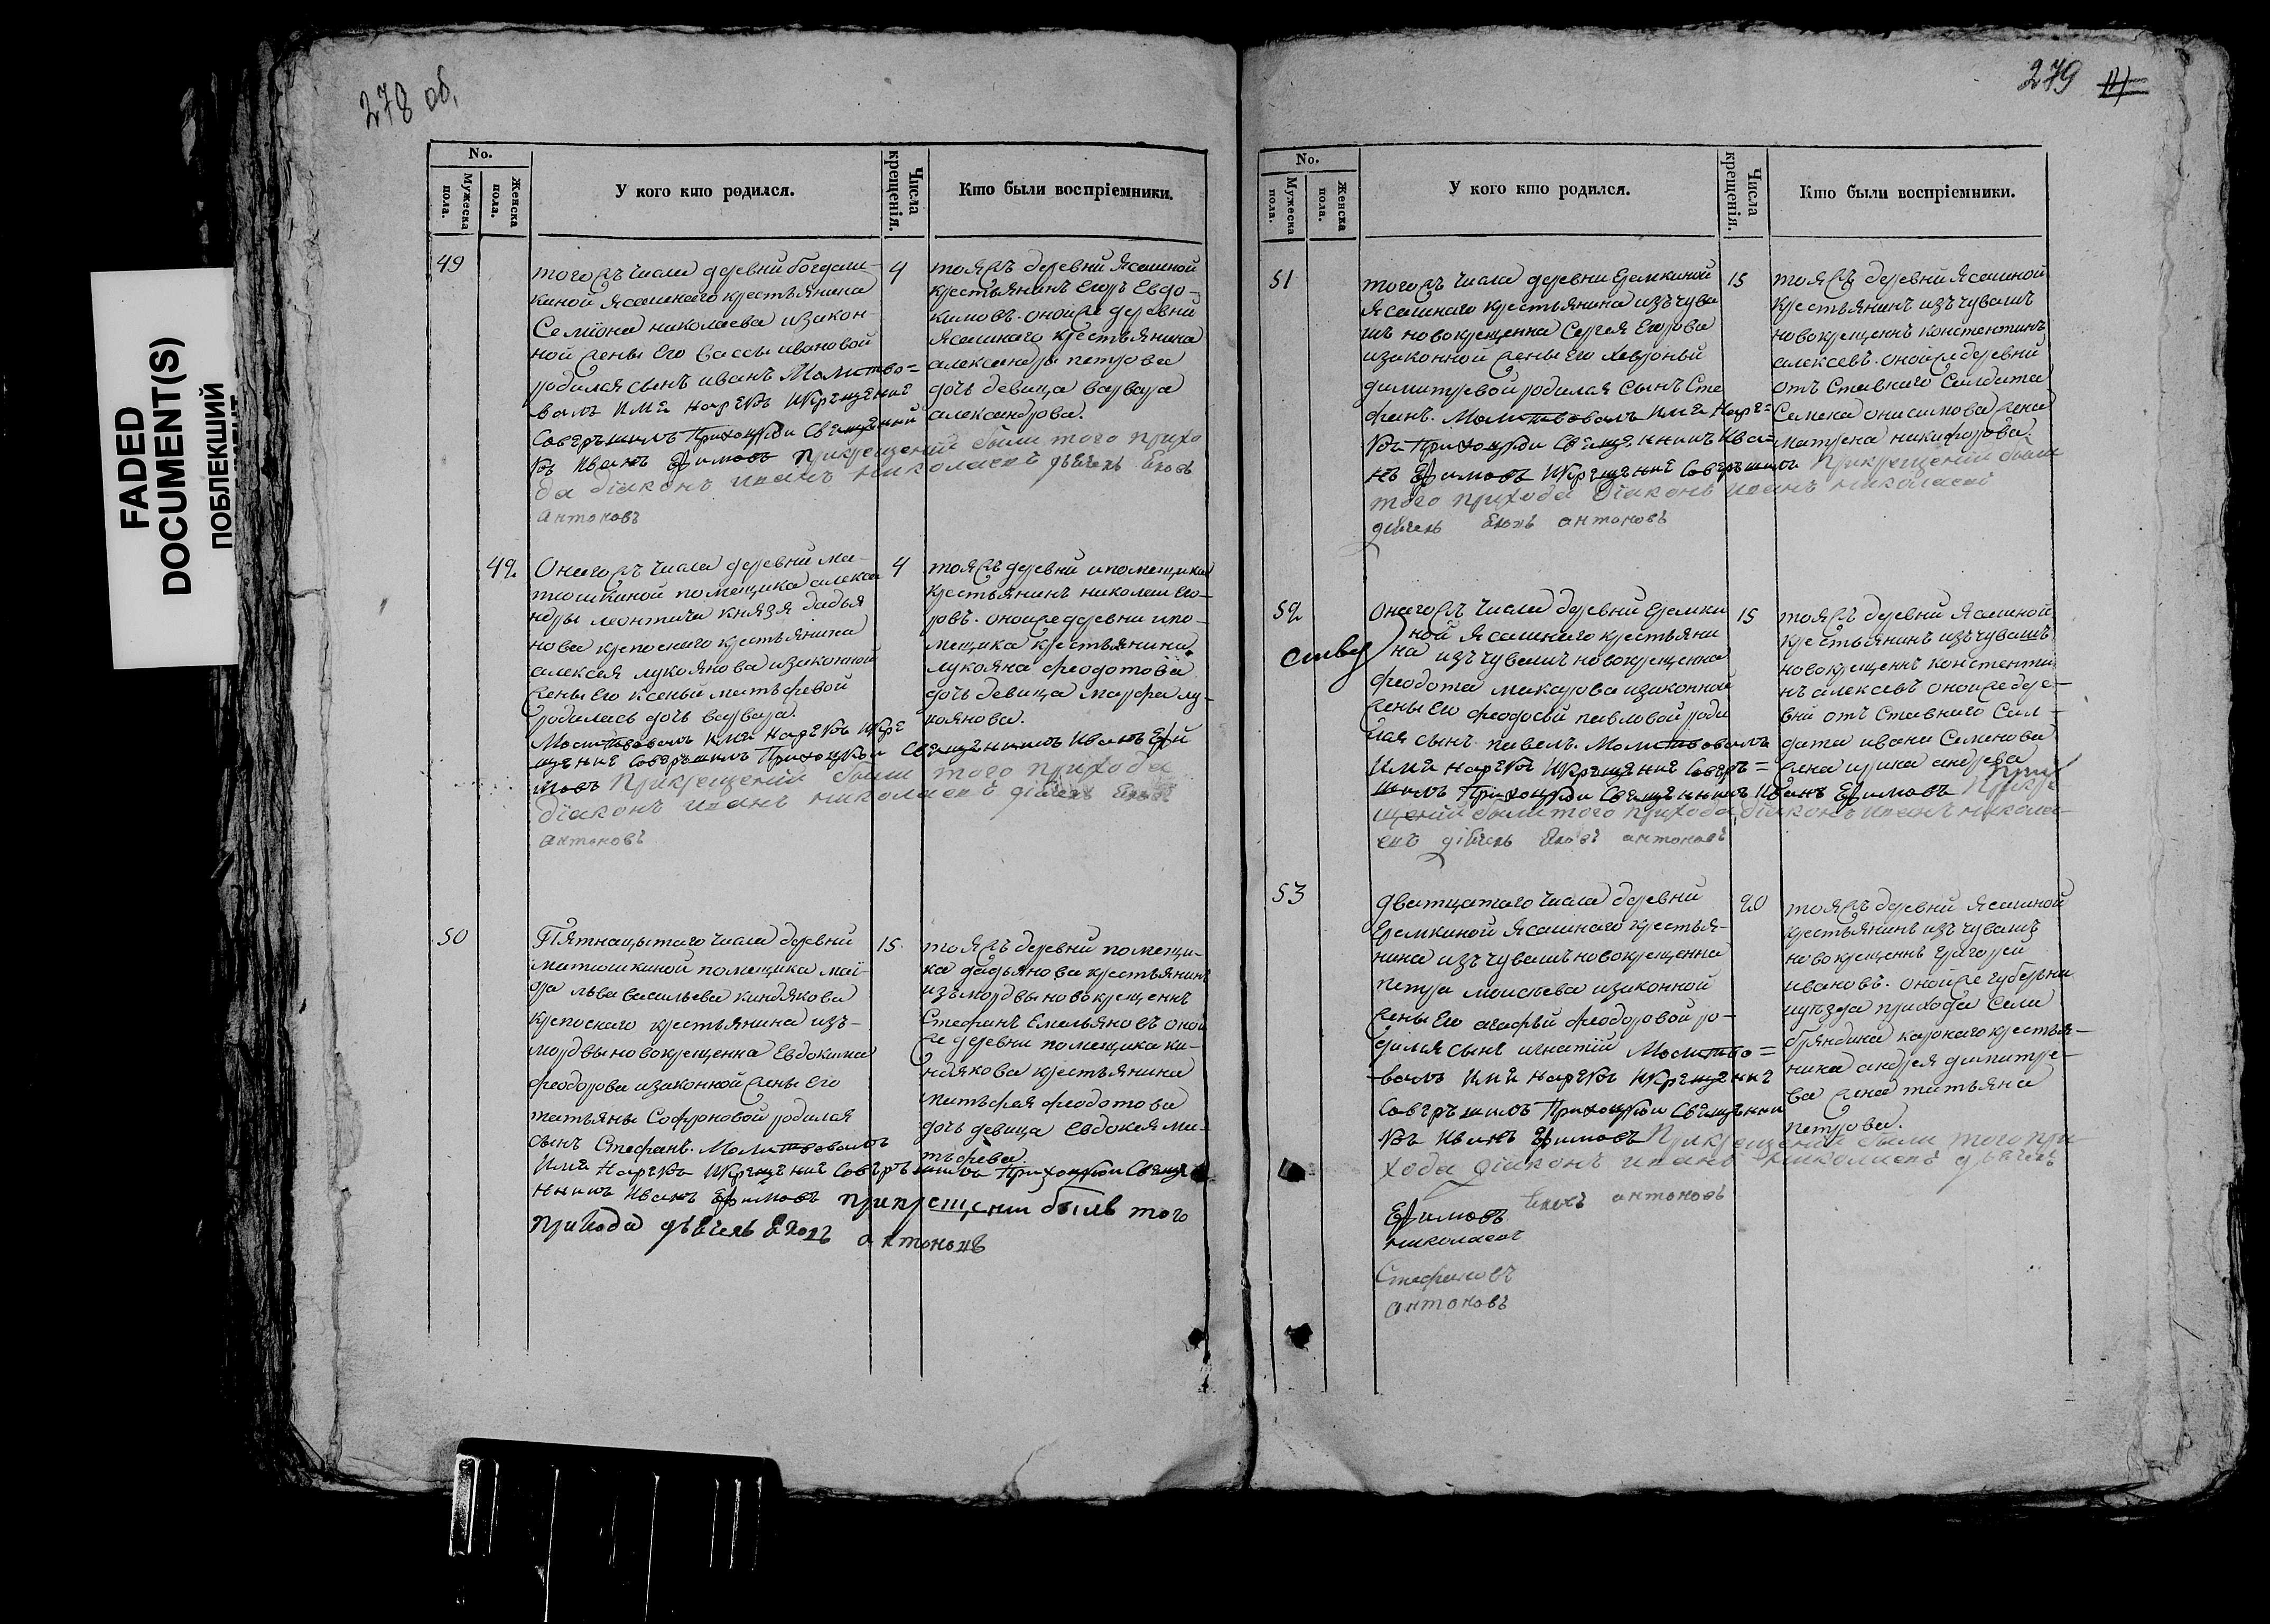 FADED
DOCUMENT(S)
ПОБЛЕКШИЙ
278 об.
No.
Мужеска пола.
Женска пола.
У кого кто родился.
Числа крещенія.
Кто были воспріемники.
49
тогожъ числа деревни богдаш-
киной ясашнаго крестьянина
Семіона николаева изакон-
ной жены Его вассы ивановой
родился сынъ иванъ Молитво=
валъ имя нарекъ икрещение
Совершилъ Приходской Священни
къ Иванъ Ефимовъ прикрещении были того прихо
да діаконъ иванъ николаевъ дьячекъ
антоновъ
4
тояжъ деревни Ясашной
крестьянинъ Егоръ Евдо-
кимовъ. оноиже деревни
ясашнаго крестьянина
александра петрова
дочь девица варвара
александрова.
42
Онагожъ числа деревни ма-
тюшкиной помещика алекса
ндры леонтича князя дадья
нова крепоснаго крестьянина
алексея лукоянова изаконной
жены Его ксеньи матьфевой
родилась дочь варвара.
Молитвовалъ имя нарекъ икре
щение Совершилъ Приходской Священникъ Иванъ Ефи
мовъ Прикрещении были того прихода
діаконъ иванъ николаевъ дьячекъ
антоновъ
4
тояжъ деревни ипомещика
крестьянинъ николаи Его-
ровъ. оноиже деревни ипо-
мещика крестьянина
лукояна феодотова
дочь девица марфа лу-
коянова.
50
Пятнацытаго числа деревни
матюшкиной помещика маі-
ора льва васильева киндякова
крепоснаго крестьянина изъ-
мордвы новокрещенна Евдокима
феодорова изаконной жены Его
татьяны Софроновой родился
сынъ Стефанъ. Молитвовалъ
имя нарекъ икрещение Совершилъ Приходской Священ
никъ Иванъ Ефимовъ прикрещении былъ того
прихода дьячекъ антоновъ
15
тояжъ деревни помещи-
ка дадьянова крестьянинъ
изъмордвы новокрещеннъ
Стефанъ Емельяновъ оной
же деревни помещика ки-
ндякова крестьянина
матьфея феодотова
дочь девица Евдокея ма-
тьфева
279
No.
Мужеска пола.
Женска пола.
У кого кто родился.
Числа крещенія.
Кто были воспріемники.
51
тогожъ числа деревни Еремкиной
Ясашнаго крестьянина изъчува
шъ новокрещенна Сергея Егорова
изаконной жены Его хавроньи
димитревой родился сынъ Сте
фанъ. Молитвовалъ имя наре=
къ Приходской Священникъ Ива=
нъ Ефимовъ икрещение Совершилъ Прикрещении были
того прихода діаконъ иванъ николаевъ
дьячекъ антоновъ
15
тояжъ деревни Ясашной
крестьянинъ изъчувашъ
новокрещеннъ констентинъ
алексевъ. оноиже деревни
отъ Ставнаго Салдата
Семена онисимова жена
матрена никифорова.
52
Онагожъ числа деревни Еремки
ной Ясашнаго крестьяни
на изъчувашъ новокрещенна
феодота макарова изаконной
жены Его феодосьи павловой роди
лся сынъ павелъ. Молитвовалъ
имя нарекъ икрещение Совер=
шилъ Приходской Священникъ Иванъ Ефимовъ Прикре
щении были того прихода діаконъ иванъ никола
евъ дьячекъ антоновъ
15
тояжъ деревни Ясашной
крестьянинъ изъчувашъ
новокрещеннъ констенти
нъ алексевъ оноиже дере-
вни отъ Ставнаго Сал-
дата ивана Семенова
жена ирина андрева
53
дватцатаго числа деревни
Еремкиной Ясашнаго крестья-
нина изъчувашъ новокрещенна
петра моисеева изаконной
жены Его агафьи феодоровой ро-
дился сынъ игнатій Молитво=
валъ имя нарекъ икрещение
Совершилъ Приходской Священни
къ Иванъ Ефимовъ Прикрещении были того при
хода діаконъ иванъ николаевъ дьячекъ
антоновъ
Ефимовъ
николаевъ
Стефановъ
антоновъ
20
тояжъ деревни Ясашной
крестьянинъ изъчувашъ
новокрещеннъ григорей
ивановъ. оноиже губерни
иуезда прихода села
бряндина крестья-
нина андрея димитре-
ва жена татьяна
петрова.